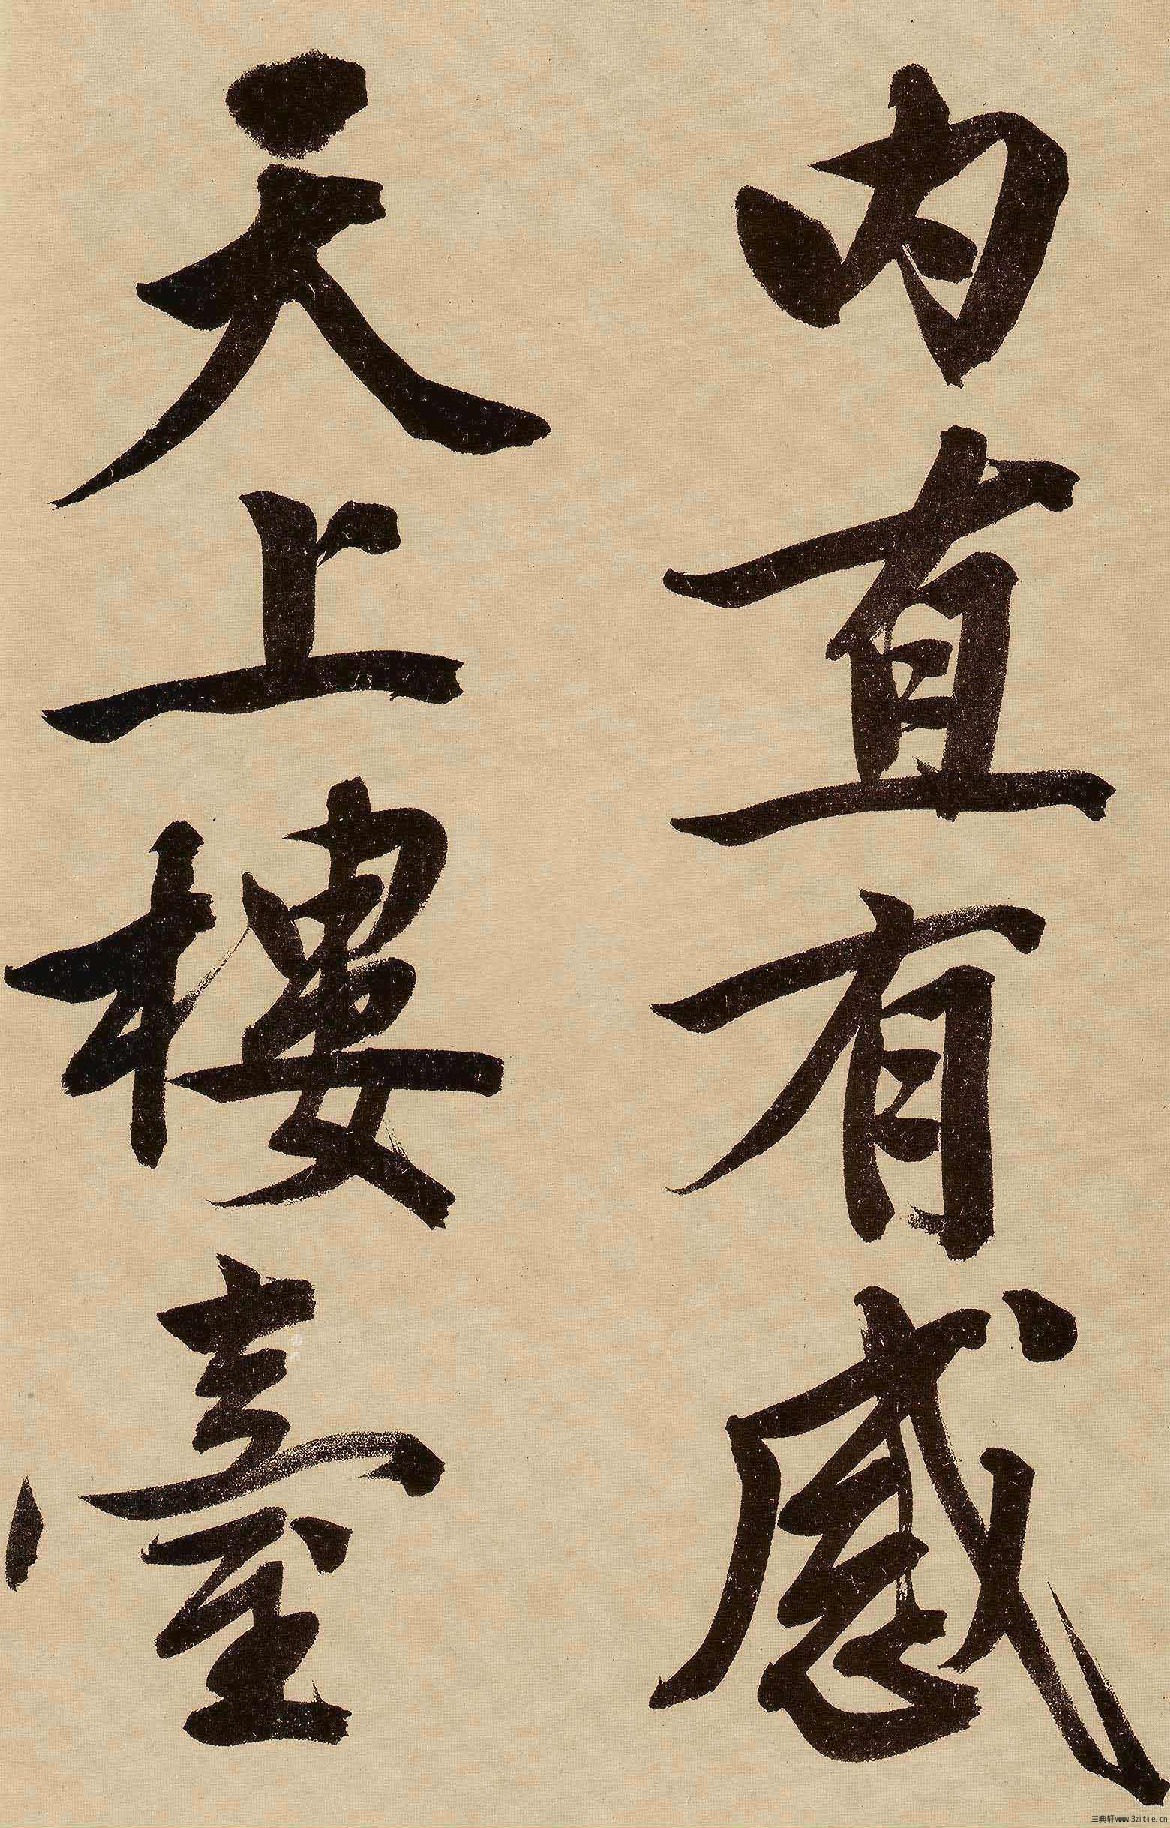 内直有感
天上樓臺
三典轩www.3zitie.cn